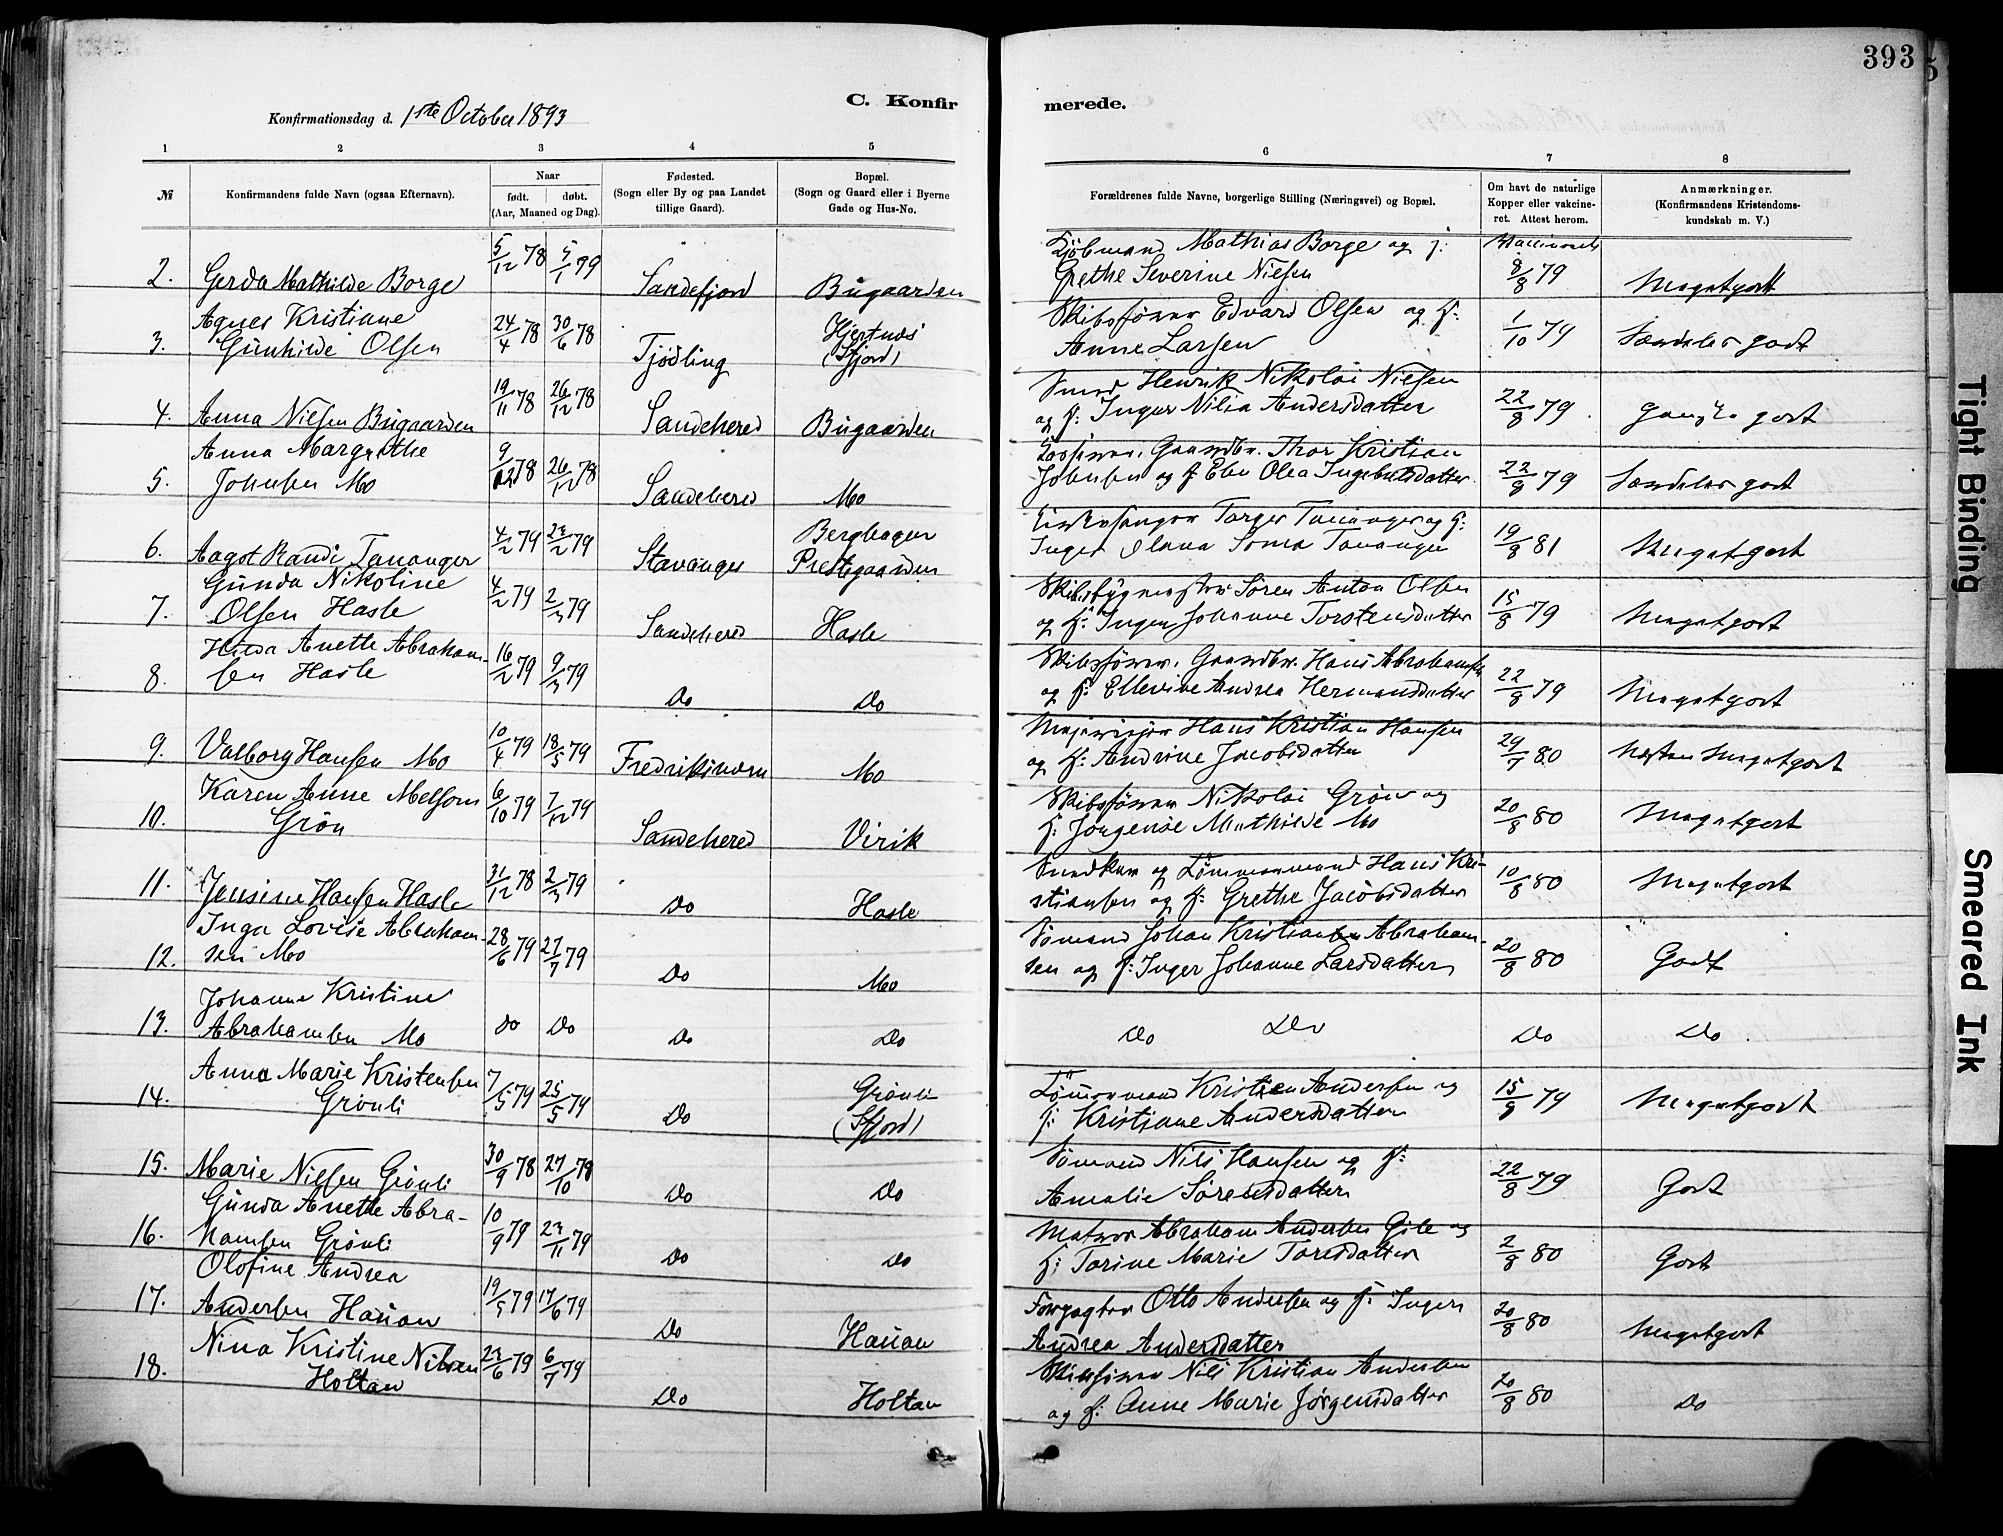 393
C. Konfirmerede.
Konfirmationsdag d. 1ste October 1893
1 2 3 4 5 6 7 8
№
Konfirmandens fulde Navn (ogsaa Efternavn).
Naar
født. døbt.
(Aar, Maaned og Dag).
Fødested.
(Sogn eller By og paa Landet
tillige Gaard).
Bopæl.
(Sogn og Gaard eller i Byerne
Gade og Hus-No.
Forældrenes fulde Navne, borgerlige Stilling (Næringsvei) og Bopæl.
Om havt de naturlige
Kopper eller vakcine-
ret. Attest herom.
Anmærkninger.
(Konfirmandens Kristendoms-
kundskab m. V.)
2. Gerda Mathilde Borge 5/12 78 5/1 79 Sandefjord Bugaarden
Kjøbmand Mathias Borge og h:
Grethe Severine Nielsen 8/8 79 Megetgodt
Agnes Kristiane
3. Gunhilde Olsen 24/4 78 30/6 78 Tjødling Hjertnæs
(Sfjord)
Skibsfører Edvard Olsen og h:
Anne Larsen 1/10 79 Særdeles godt
4. Anna Nielsen Bugaarden 19/11 78 26/12 78 Sandehered Bugaarden
Smed Henrik Nikolai Nielsen
og h: Inger Nilia Andersdatter 22/8 79 ganske godt
Anna Margrethe
5. Johnsen Mo 9/12 78 26/12 78 Sandehered Mo
Gaardbr. Thor Kristian
Johnsen og h Olea Ingebretsdatter 22/8 79 Særdeles godt
6. Aagot Randi Tananger 4/2 79 23/2 79 Stavanger Berghagen
Prestegaarden
Kirkesanger Torger Tananger og h:
Inger Olana Soma Tananger 19/8 81 Megetgodt
Gunda Nikoline
7. Olsen Hasle 4/2 79 2/3 79 Sandehered Hasle
Skibsbygmester Søren Anton Olsen
og h: Inger Johanne Torstensdatter 15/8 79 Megetgodt
Hilda Anette Abraham-
8. sen Hasle 16/2 79 9/3 79 Do Do
Skibsfører, Gaardbr. Hans Abrahamsen
og h: Ellevine Andrea Hermansdatter 22/8 79 Megetgodt
9. Valborg Hansen Mo 10/4 79 18/5 79 Fredriksværn Mo
Hans Kristian Hansen
og h: Andrine Jacobsdatter 29/7 80 Næsten Megetgodt
Karen Anne Melsom
10. Grøn 6/10 79 7/12 79 Sandehered Virik
Skibsfører Nikolai Grøn og
h: Jørgense Mathilde Mo 20/8 80 Megetgodt
11. Jensine Hansen Hasle 31/12 78 2/3 79 Do Hasle
Snedker og Tømmermand Hans Kri-
stiansen og h: Grethe Jacobsdatter 10/8 80 Megetgodt
Inga Lovise Abraham-
12. sen Mo 28/6 79 27/7 79 Do Mo
Sømand Johan Kristian Abraham-
sen og h: Inger Johanne Larsdatter 20/8 80 Godt
Johanne Kristine
13. Abrahamsen Mo Do Do Do Do Do Do Do Do
Anna Marie Kristensen
14. Grønli 7/5 79 25/5 79 Do Grønli
(Sfjord)
Tømmermand Kristen Andersen og
h: Kristiane Andersdatter 15/9 79 Megetgodt
15. Marie Nielsen Grønli 30/9 78 27/10 78 Do Do
Sømand Nils Hansen og h:
Amalie Sørensdatter 22/8 79 Godt
Gunda Anette Abra-
16. hamsen Grønli 10/9 79 23/11 79 Do Do
Matros Abraham Andersen Gile og
h: Torine Marie Toresdatter 2/8 80 Godt
Olofine Andrea
17. Andersen Hauan 19/5 79 17/6 79 Do Hauan
Forpagter Otto Andersen og h: Inger
Andrea Andersdatter 20/8 80 Megetgodt
Nina Kristine Nilsen
18. Holtan 23/6 79 6/7 79 Do Holtan
Skibsfører Nils Kristian Andersen
og h: Anne Marie Jørgensdatter 20/8 80 Do
Tight Binding
Smeared Ink